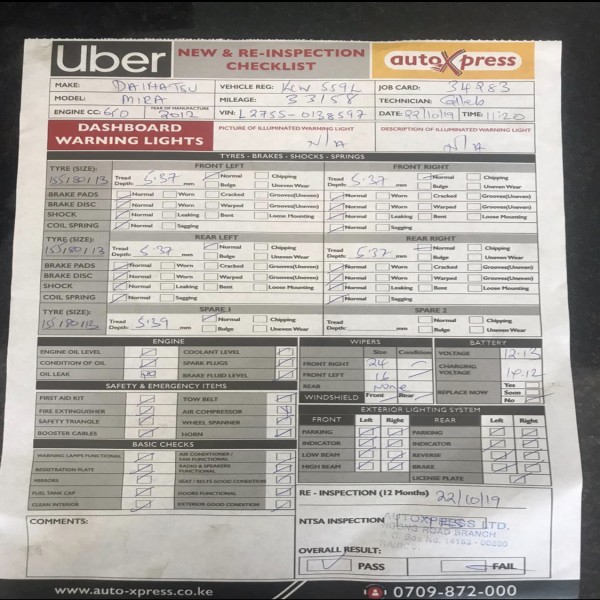 Uber NEW & RE-INSPECTION CHECKLIST autoXpress
MAKE: DAIHATSU VEHICLE REG: KCW 559L JOB CARD: 34283
MODEL: MIRA MILEAGE: 33158 TECHNICIAN: Caleb
ENGINE CC: 650 YEAR OF MANUFACTURE 2012 VIN: L275S-0138597 DATE: 22/10/19 TIME: 11:20
DASHBOARD WARNING LIGHTS PICTURE OF ILLUMINATED WARNING LIGHT N/A DESCRIPTION OF ILLUMINATED WARNING LIGHT N/A
TYRES - BRAKES - SHOCKS - SPRINGS
TYRE (SIZE): FRONT LEFT FRONT RIGHT
155/80/13 Tread Depth: 5.37 mm Normal Chipping Tread Depth: 5.37 mm Normal Chipping
Bulge Uneven Wear Bulge Uneven Wear
BRAKE PADS Normal Worn Cracked Grooves(Uneven) Normal Worn Cracked Grooves(Uneven)
BRAKE DISC Normal Worn Warped Grooves(Uneven) Normal Worn Warped Grooves(Uneven)
SHOCK Normal Leaking Bent Loose Mounting Normal Leaking Bent Loose Mounting
COIL SPRING Normal Sagging Normal Sagging
TYRE (SIZE): REAR LEFT REAR RIGHT
155/80/13 Tread Depth: 5.37 mm Normal Chipping Tread Depth: 5.37 mm Normal Chipping
Bulge Uneven Wear Bulge Uneven Wear
BRAKE PADS Normal Worn Cracked Grooves(Uneven) Normal Worn Cracked Grooves(Uneven)
BRAKE DISC Normal Worn Warped Grooves(Uneven) Normal Worn Warped Grooves(Uneven)
SHOCK Normal Leaking Bent Loose Mounting Normal Leaking Bent Loose Mounting
COIL SPRING Normal Sagging Normal Sagging
TYRE (SIZE): SPARE 1 SPARE 2
Tread Depth: 5.39 mm Normal Chipping Tread Depth: mm Normal Chipping
Bulge Uneven Wear Bulge Uneven Wear
ENGINE
ENGINE OIL LEVEL COOLANT LEVEL
CONDITION OF OIL SPARK PLUGS
OIL LEAK NO BRAKE FLUID LEVEL
SAFETY & EMERGENCY ITEMS
FIRST AID KIT TOW BELT
FIRE EXTINGUISHER AIR COMPRESSOR
SAFETY TRIANGLE WHEEL SPANNER
BOOSTER CABLES HORN
BASIC CHECKS
WARNING LAMPS FUNCTIONAL AIR CONDITIONER / FAN FUNCTIONAL
REGISTRATION PLATE RADIO & SPEAKERS FUNCTIONAL
MIRRORS SEAT / BELTS GOOD CONDITION
FUEL TANK CAP DOORS FUNCTIONAL
CLEAN INTERIOR EXTERIOR GOOD CONDITION
WIPERS
Size Condition
FRONT RIGHT 24
FRONT LEFT 16
REAR None
WINDSHIELD Front Rear
BATTERY
VOLTAGE 12.13
CHARGING VOLTAGE 14.12
REPLACE NOW Yes Soon No
EXTERIOR LIGHTING SYSTEM
FRONT Left Right REAR Left Right
PARKING PARKING
INDICATOR INDICATOR
LOW BEAM REVERSE
HIGH BEAM BRAKE
LICENSE PLATE
RE - INSPECTION (12 Months) 22/10/19
COMMENTS:
NTSA INSPECTION AUTOXPRESS LTD.
ROAD BRANCH
OVERALL RESULT:
PASS FAIL
www.auto-xpress.co.ke 0709-872-000